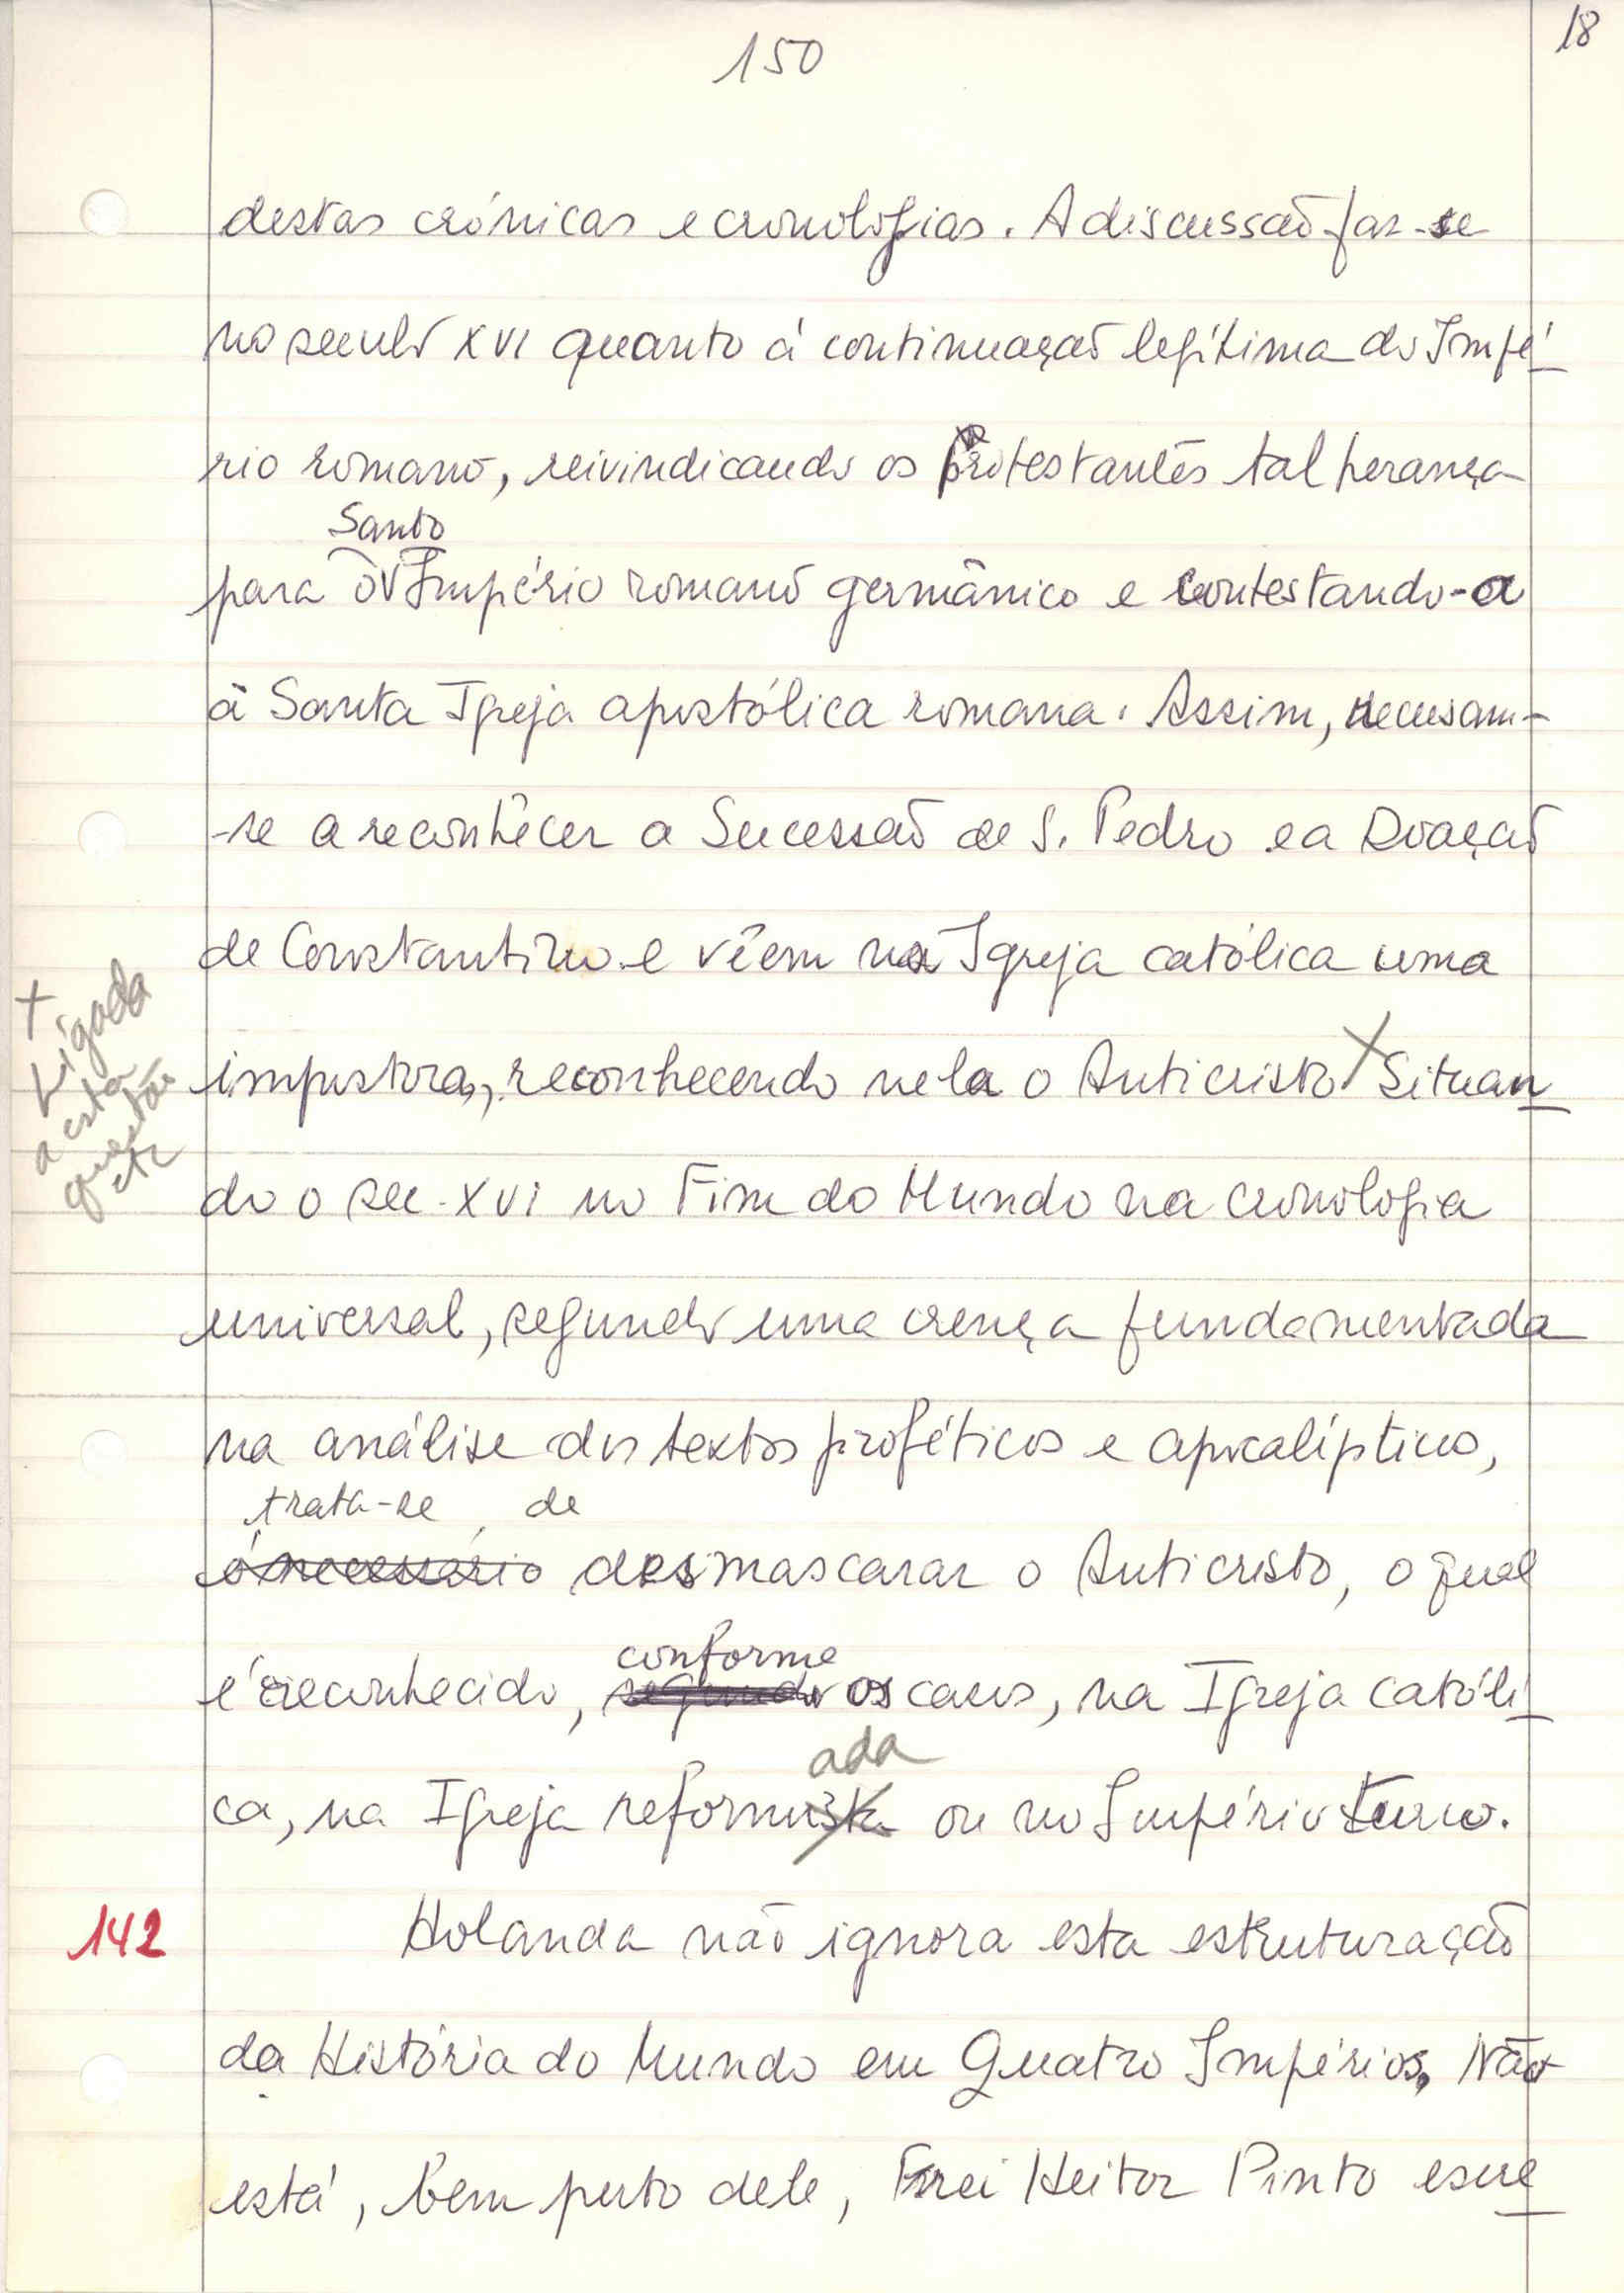 18
150
destas crónicas e cronologias. A discussão faz-se
no século XVI quanto à continuação legítima do Impé
rio romano, reivindicando os Protestantes tal herança
Santo
para o Império romano germânico e contestando-a
à Santa Igreja apostólica romana. Assim, recusam-
-se a reconhecer a Sucessão de S. Pedro e a Doação
de Constantino e vêem na Igreja católica uma
impostora, reconhecendo nela o Anticristo X Situan
X
Ligada
a esta
questão
etc
do o sec. XVI no Fim do Mundo na cronologia
universal, segundo uma crença fundamentada
na análise dos textos proféticos e apocalípticos,
trata-se de
é necessário desmascarar o Anticristo, o qual
conforme
é reconhecido, segundo os casos, na Igreja Católi
ada
ca, na Igreja reformista ou no Império turco.
142
Holanda não ignora esta estruturação
da História do Mundo em Quatro Impérios. Não
está, bem perto dele, Frei Heitor Pinto escre